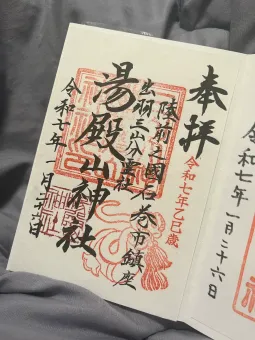 奉拝
令和七年乙巳歳
陸前之國石巻市鎮座
出羽三山分霊社
湯殿山神社
令和七年一月二十六日
令和七年一月二十六日